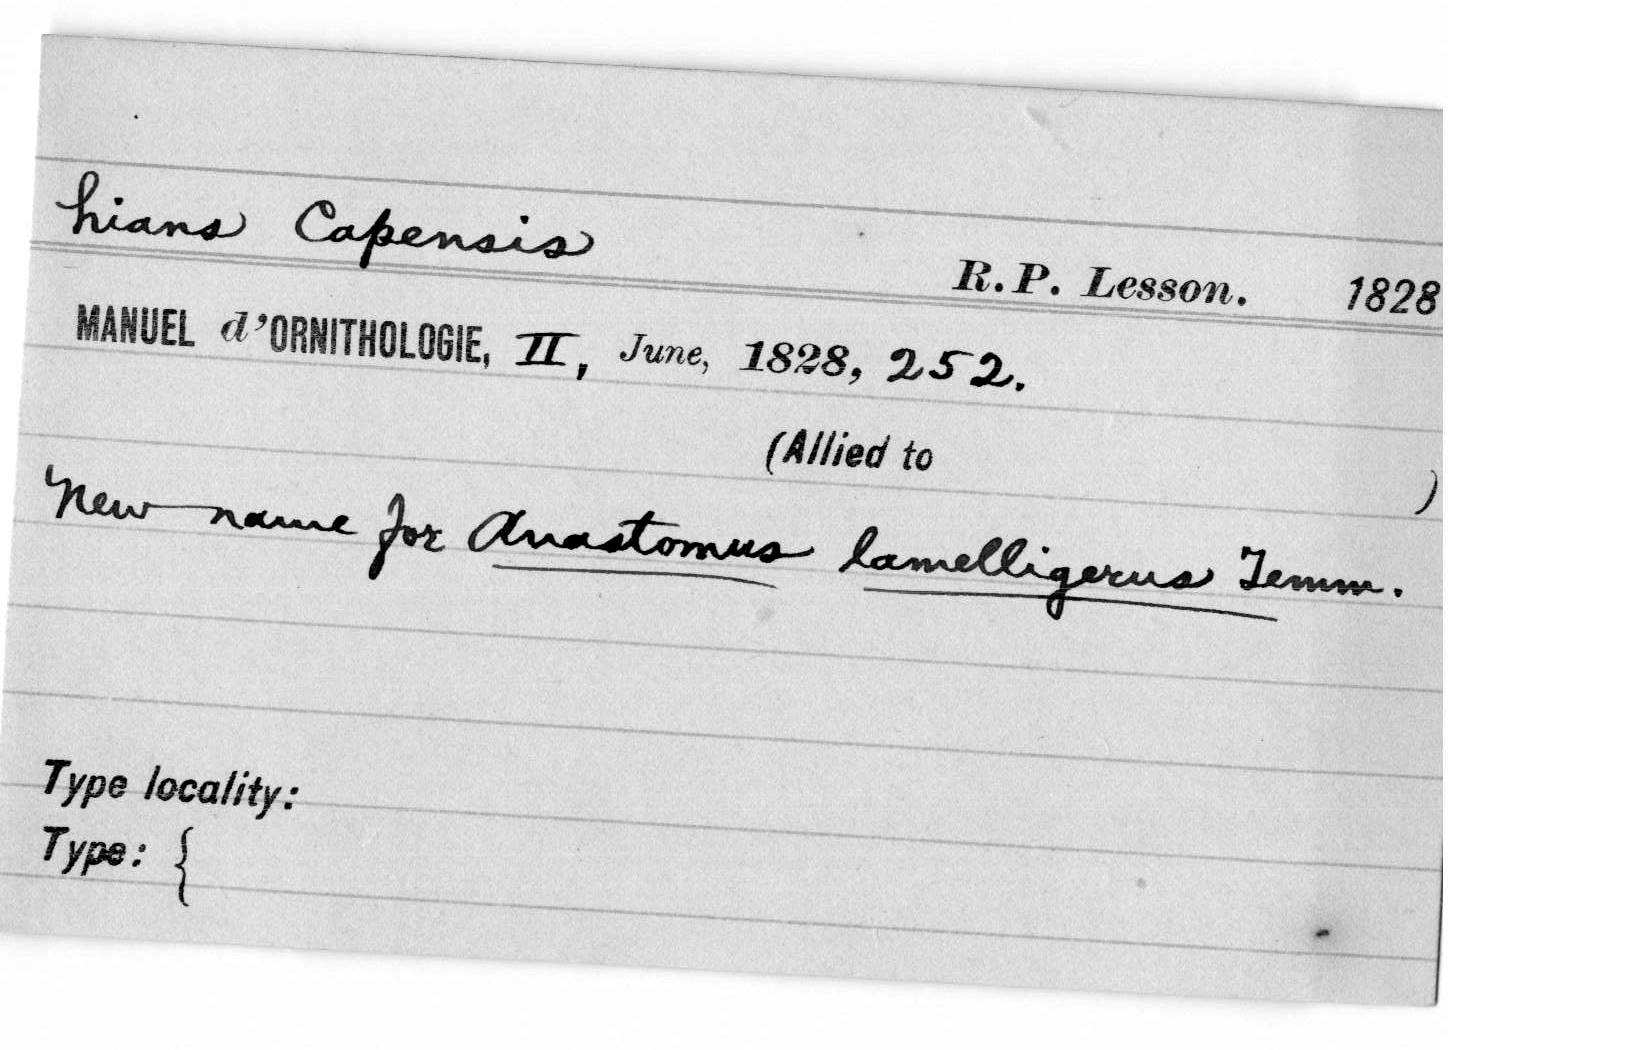 hians Capensis
R.P. Lesson. 1828
MANUEL d'ORNITHOLOGIE, II, June, 1828, 252.
(Allied to )
New name for Anastomus lamelligerus Temm.
Type locality:
Type: {